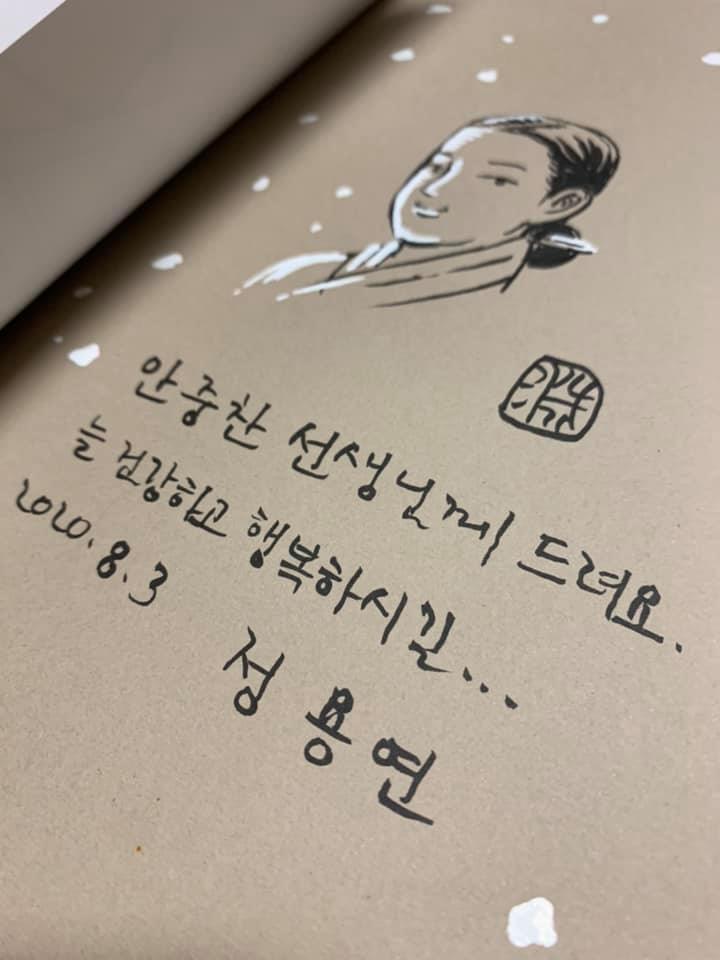 안중찬 선생님께 드려요.
늘 건강하고 행복하시길...
2020. 8. 3
정용연